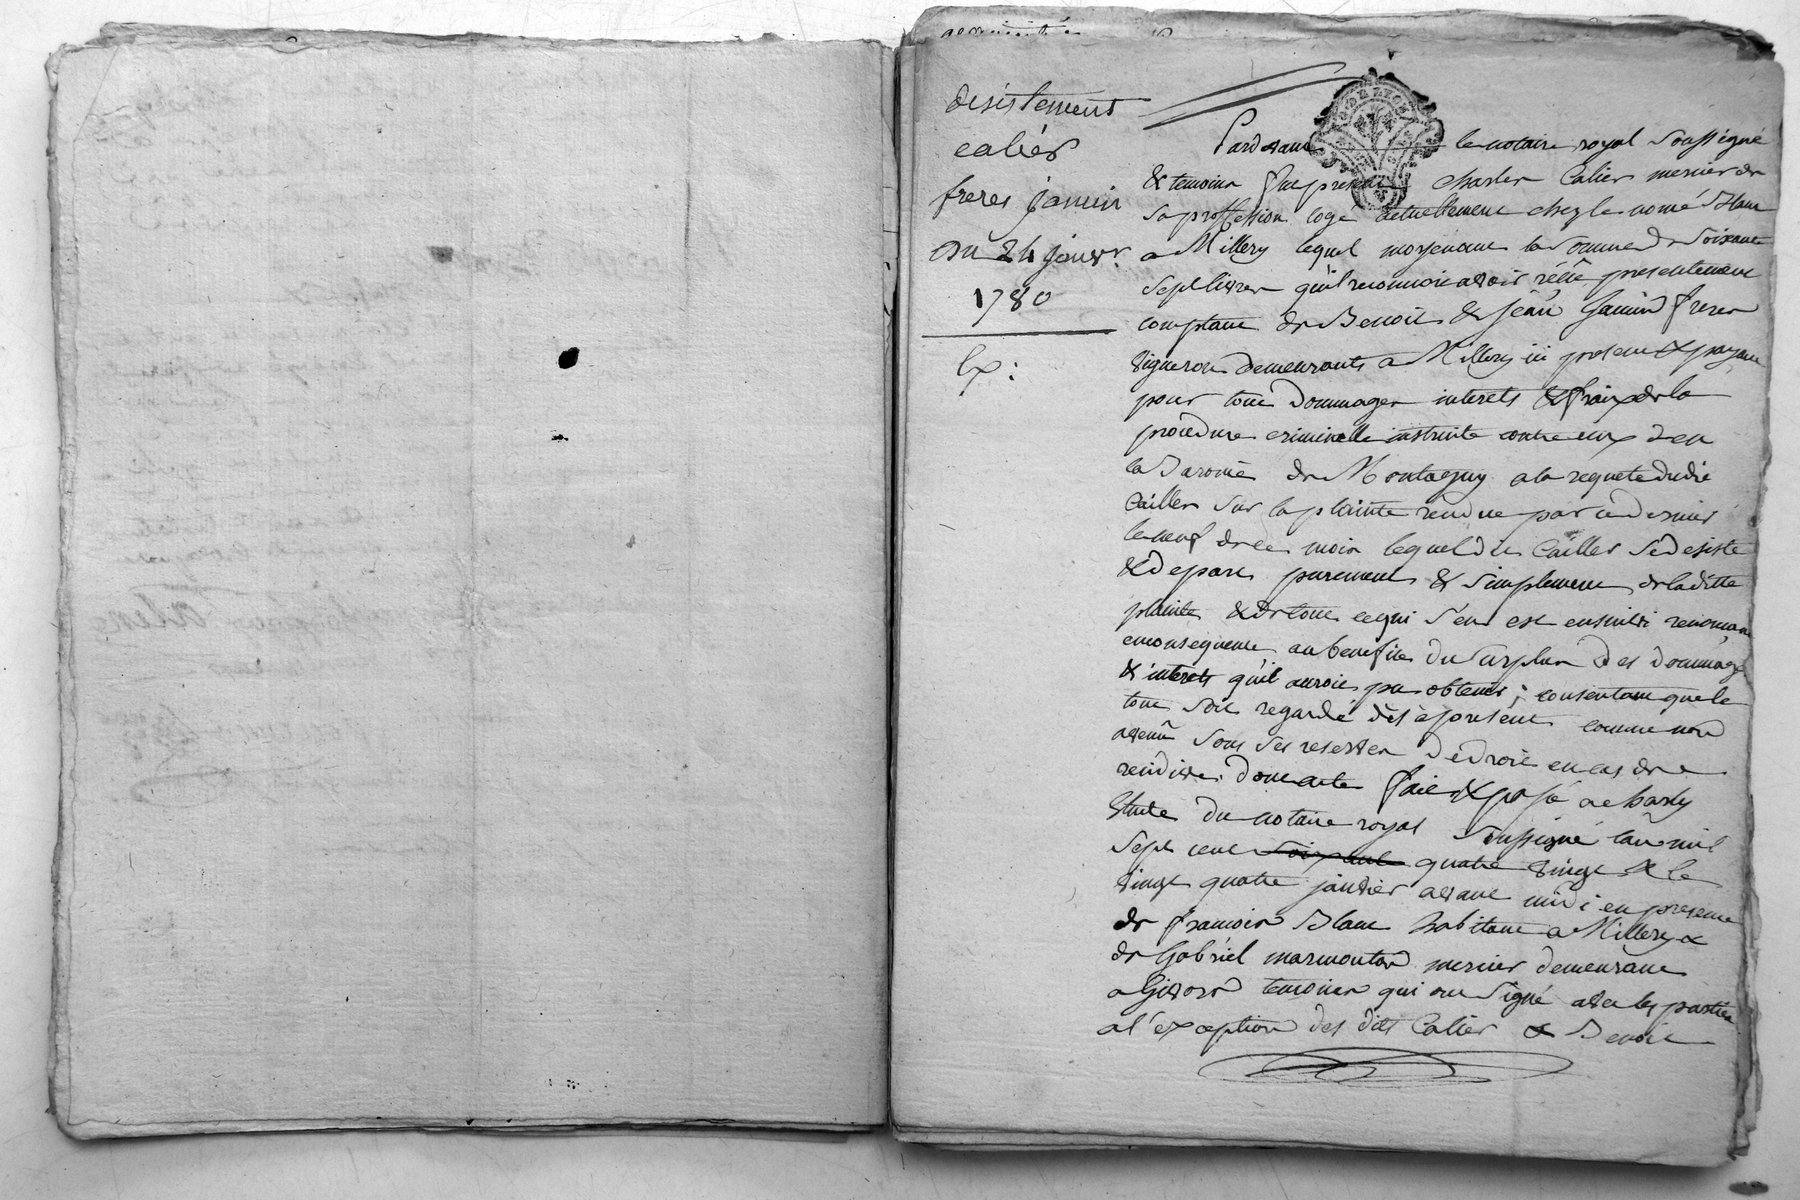 desistement
calier
freres jamin
du 24 janvr.
1780
Ex:
Pardevant le notaire royal Soussigné
& temoins fut present charles Calier menier de
sa proffession logé actuellement chez le nomé Blanc
a Millery lequel moyenant la Somme de Soixante
Sept livres qu'il reconnoit avoir reçû presentement
comptant de Benoit & jean Jamin freres
vignerons demeurants a Millery ici present & payant
pour tous dommages interets & fraix de la
procedure criminelle instruite contre eux d en
la Baronie de Montagny a la requete dudit
Cailler sur la plainte rendue par ce dernier
le neuf de ce mois lequel dit Cailler se desiste
& depart purement & simplement de la ditte
plainte & de tout ce qui s'en est ensuivi renonçant
en consequence au benefice du surplus des dommages
& interets qu'il auroit pu obtenir; consentant que le
tout soit regardé dès à present comme non
avenû sous ses reserves de droit en cas de
recidive. dont acte fait & passé a charly
etude du notaire royal soussigné l'an mil
sept cent soixante quatre vingt & le
vingt quatre janvier avant midi en presence
de françois Blanc habitant a Millery &
de Gabriel marmonton menier demeurant
a Givors temoins qui ont signé avec les parties
a l'exception des dits Calier & Benoit